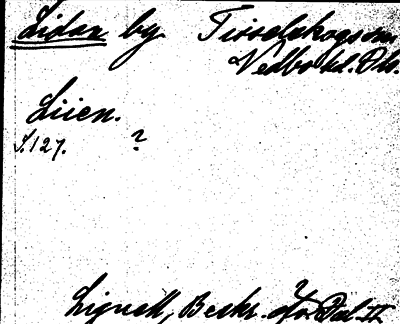 Lidan by Tisselskogs sn
Vedbo hd. Dls.
Liien.
S. 127. ?
Lignell, Beskr. öfv. Dal. II